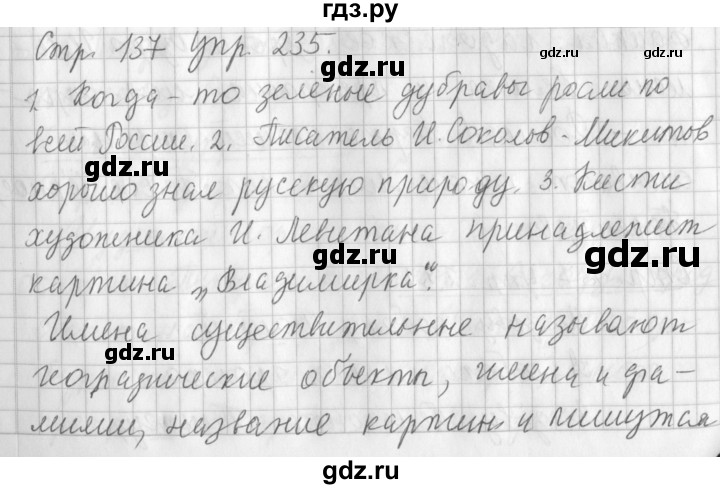 гдз.ру
Стр. 137 Упр. 235.
gdz.ru
gdz.ru
gdz.ru
1. Когда-то зелёные дубравы росли по
gdz.ru
всей России. 2. Писатель И. Соколов-Микитов
gdz.ru
хорошо знал русскую природу. 3. Кисти
художника И. Левитана принадлежит
gdz.ru
gdz.ru
картина „Владимирка".
Имена существительные называют
gdz.ru
gdz.ru
географические объекты, имена и фа-
gdz.ru
милии, название картин и пишутся
gdz.ru
gdz.ru
гдз.ру